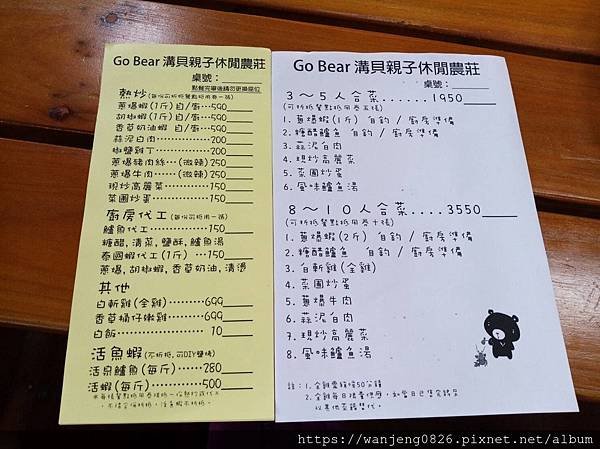 Go Bear 溝貝親子休閒農莊
桌號：
點餐完畢後請勿更換座位
熱炒(每份可折抵餐點抵用卷一張)
蔥爆蝦(1斤)自/廚...590
胡椒蝦(1斤)自/廚...590
香草奶油蝦 自/廚...590
蒜泥白肉............200
椒鹽雞丁............200
蔥爆豬肉絲...(微辣)250
蔥爆牛肉......(微辣)250
現炒高麗菜............150
菜圃炒蛋...............150
廚房代工(每份可抵用一張)
鱸魚代工...............150
糖醋,清菜,鹽酥,鱸魚湯
泰國蝦代工(1斤) ...150
蔥爆,胡椒蝦,香草奶油,清燙
其他
白斬雞(全雞).........699
香草桶仔嫩雞.........699
白飯..................... 10
活魚蝦(不折抵,可DIY鹽烤)
活泉鱸魚(每斤)......280
活蝦(每斤)............500
Go Bear 溝貝親子休閒農莊
桌號：
3～5人合菜......1950
(可折抵餐點抵用卷五張)
1.蔥爆蝦(1斤) 自釣 / 廚房準備
2.糖醋鱸魚 自釣 / 廚房準備
3.蒜泥白肉
4.現炒高麗菜
5.菜圃炒蛋
6.風味鱸魚湯
8～10人合菜....3550
(可折抵餐點抵用卷十張)
1.蔥爆蝦(2斤) 自釣 / 廚房準備
2.糖醋鱸魚 自釣 / 廚房準備
3.白斬雞(全雞)
4.菜圃炒蛋
5.蔥爆牛肉
6.蒜泥白肉
7.現炒高麗菜
8.風味鱸魚湯
註：1.全雞需稍待50分鐘
2.全雞每日限量供應,如當日已售完請另
以其他菜替代.
https://wanjeng0826.pixnet.net/album